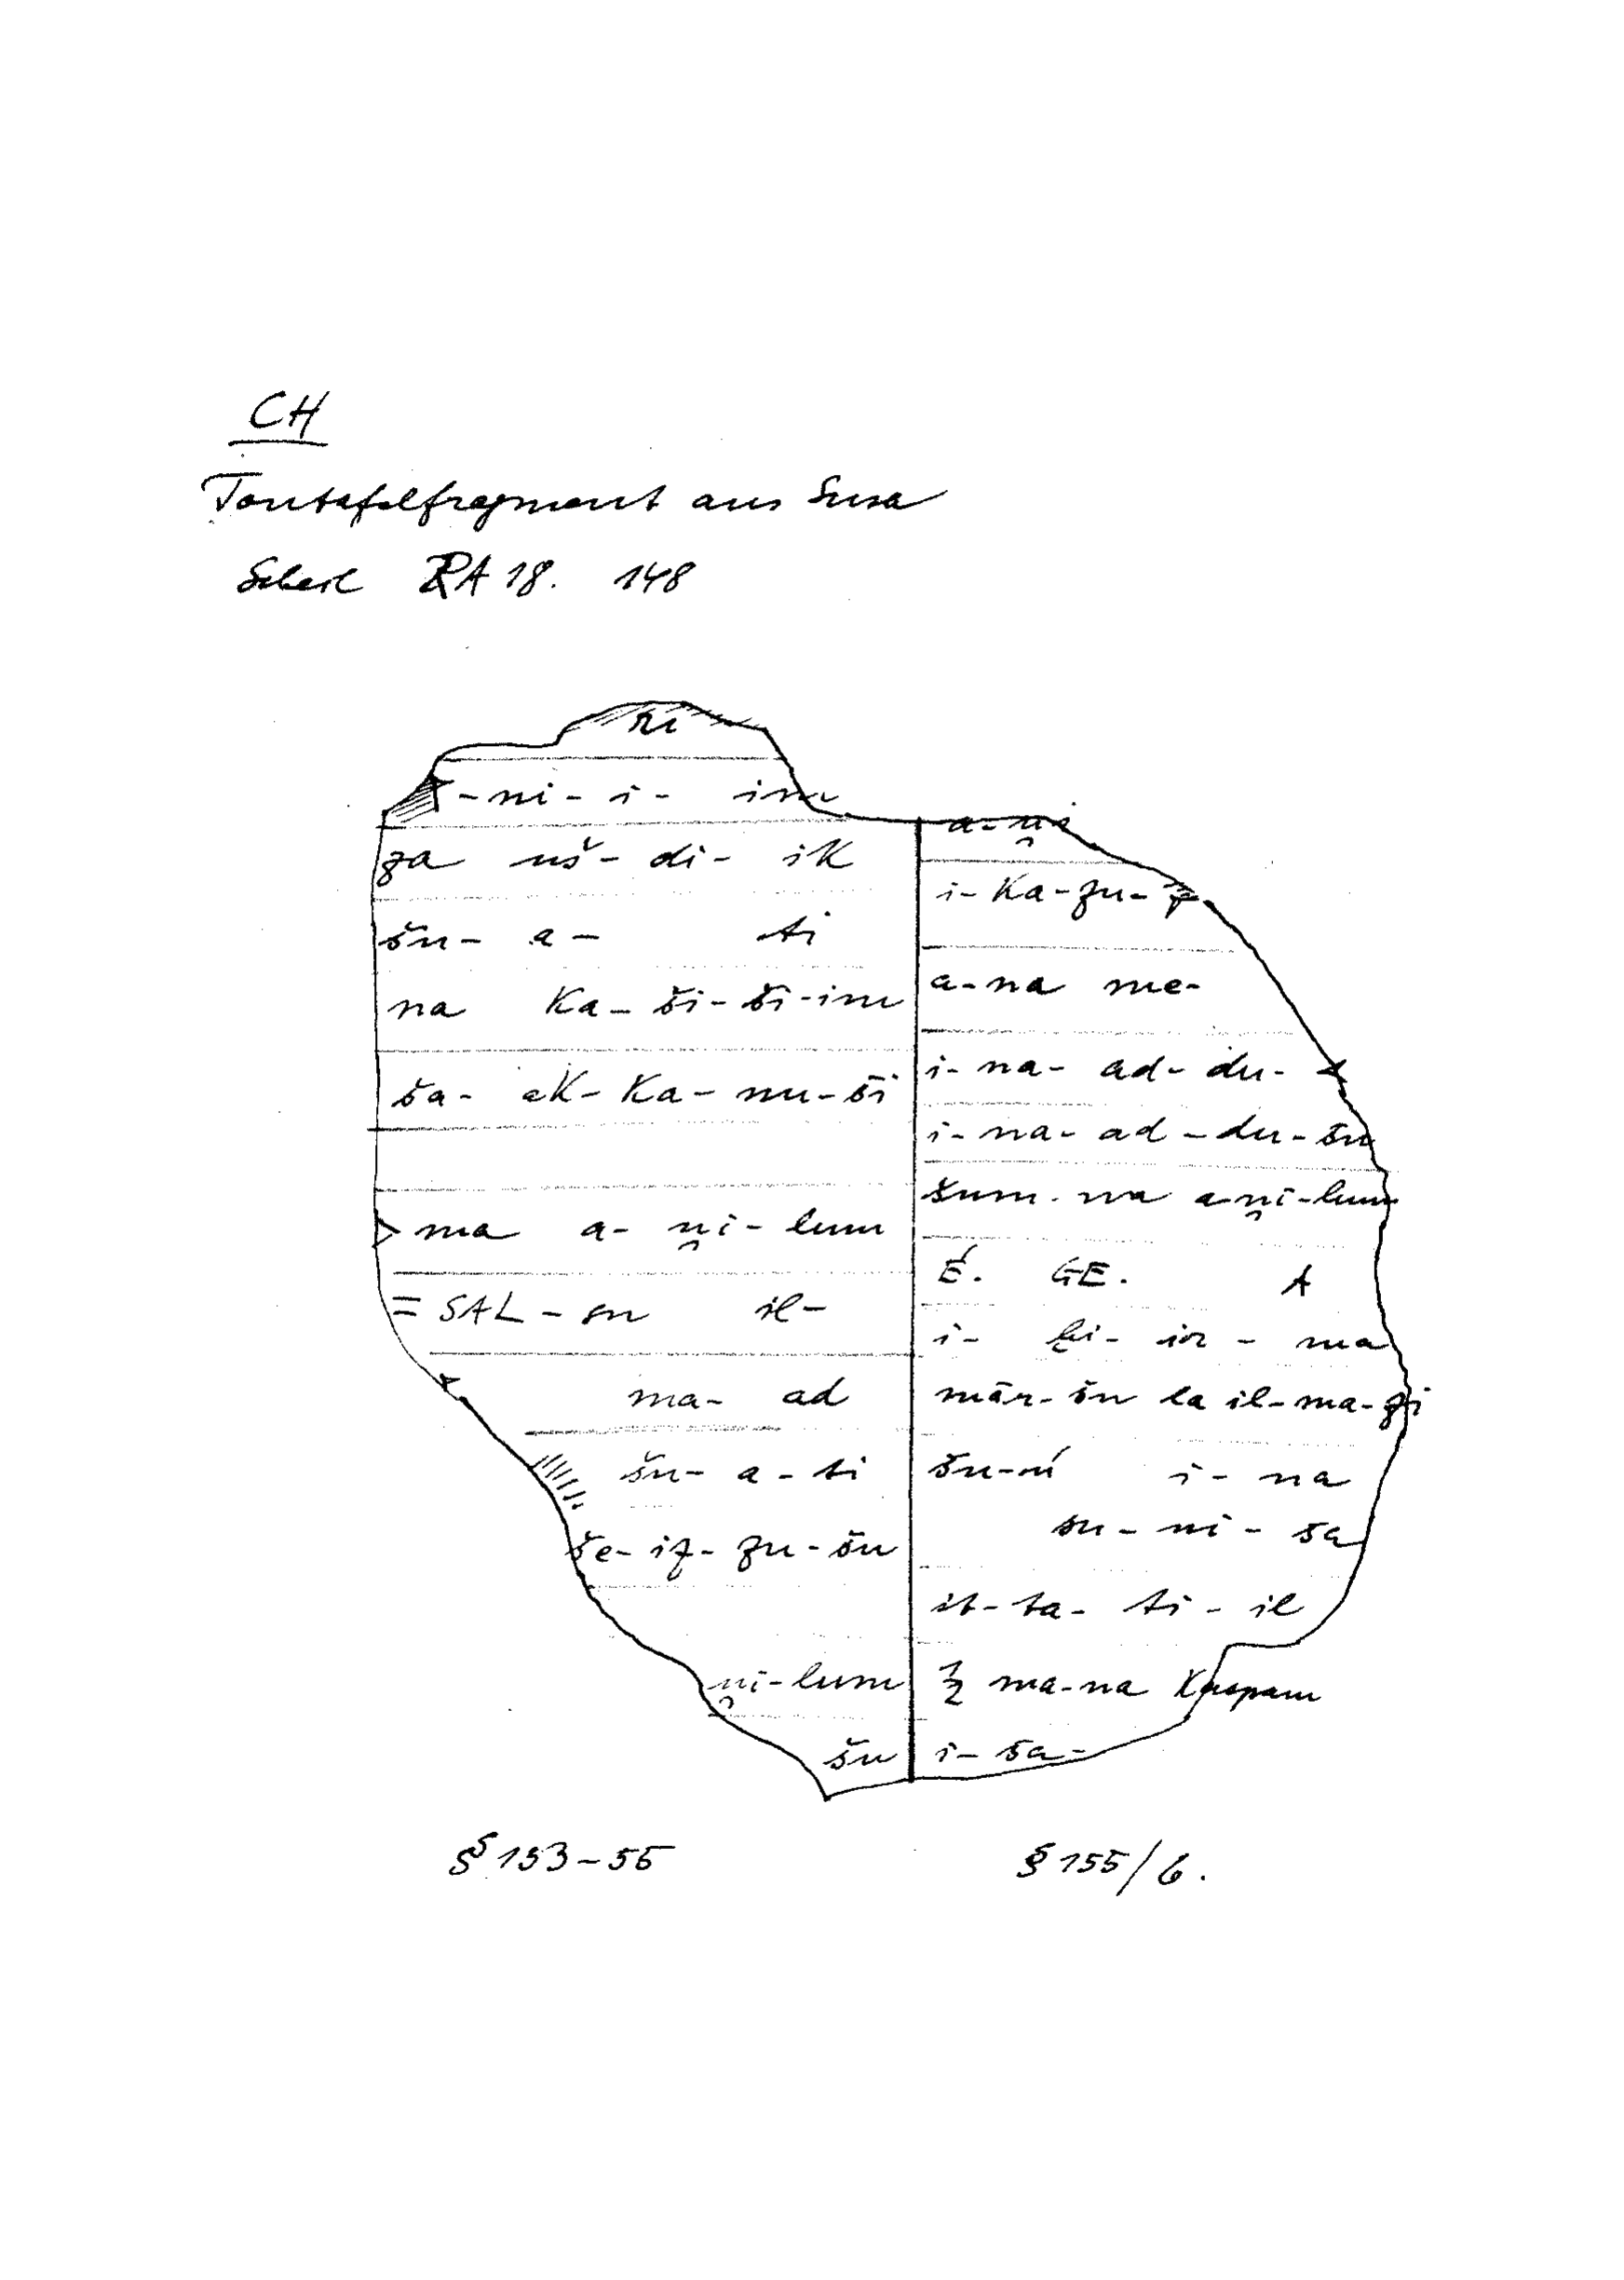 CH
Tontafelfragment aus Susa
Scheil RA 18. 148
ri
-ni-i-im
za uš-di-ik
šu-a-ti
na Ka-ši-ši-im
ša-aK-Ka-nu-ši
ma a-u̯i-lum
SAL-su il-
ma-ad
šu-a-ti
še-iz-zu-šu
u̯i-lum
šu
a-u̯i
i-Ka-zu-
a-na me-
i-na-ad-du-
i-na-ad-du-šu
šum-ma a-u̯i-lum
É. GE. A
i-ḫi-ir-ma
mār-šu la il-ma-zi
šu-ú i-na
su-ni-ša
it-ta-ti-il
½ ma-na Kaspam
i-ša-
§ 153-55
§ 155/6.